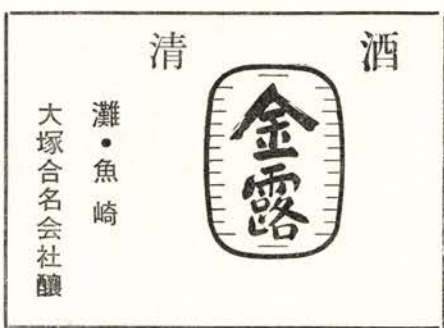 清酒
金露
灘・魚崎
大塚合名会社醸